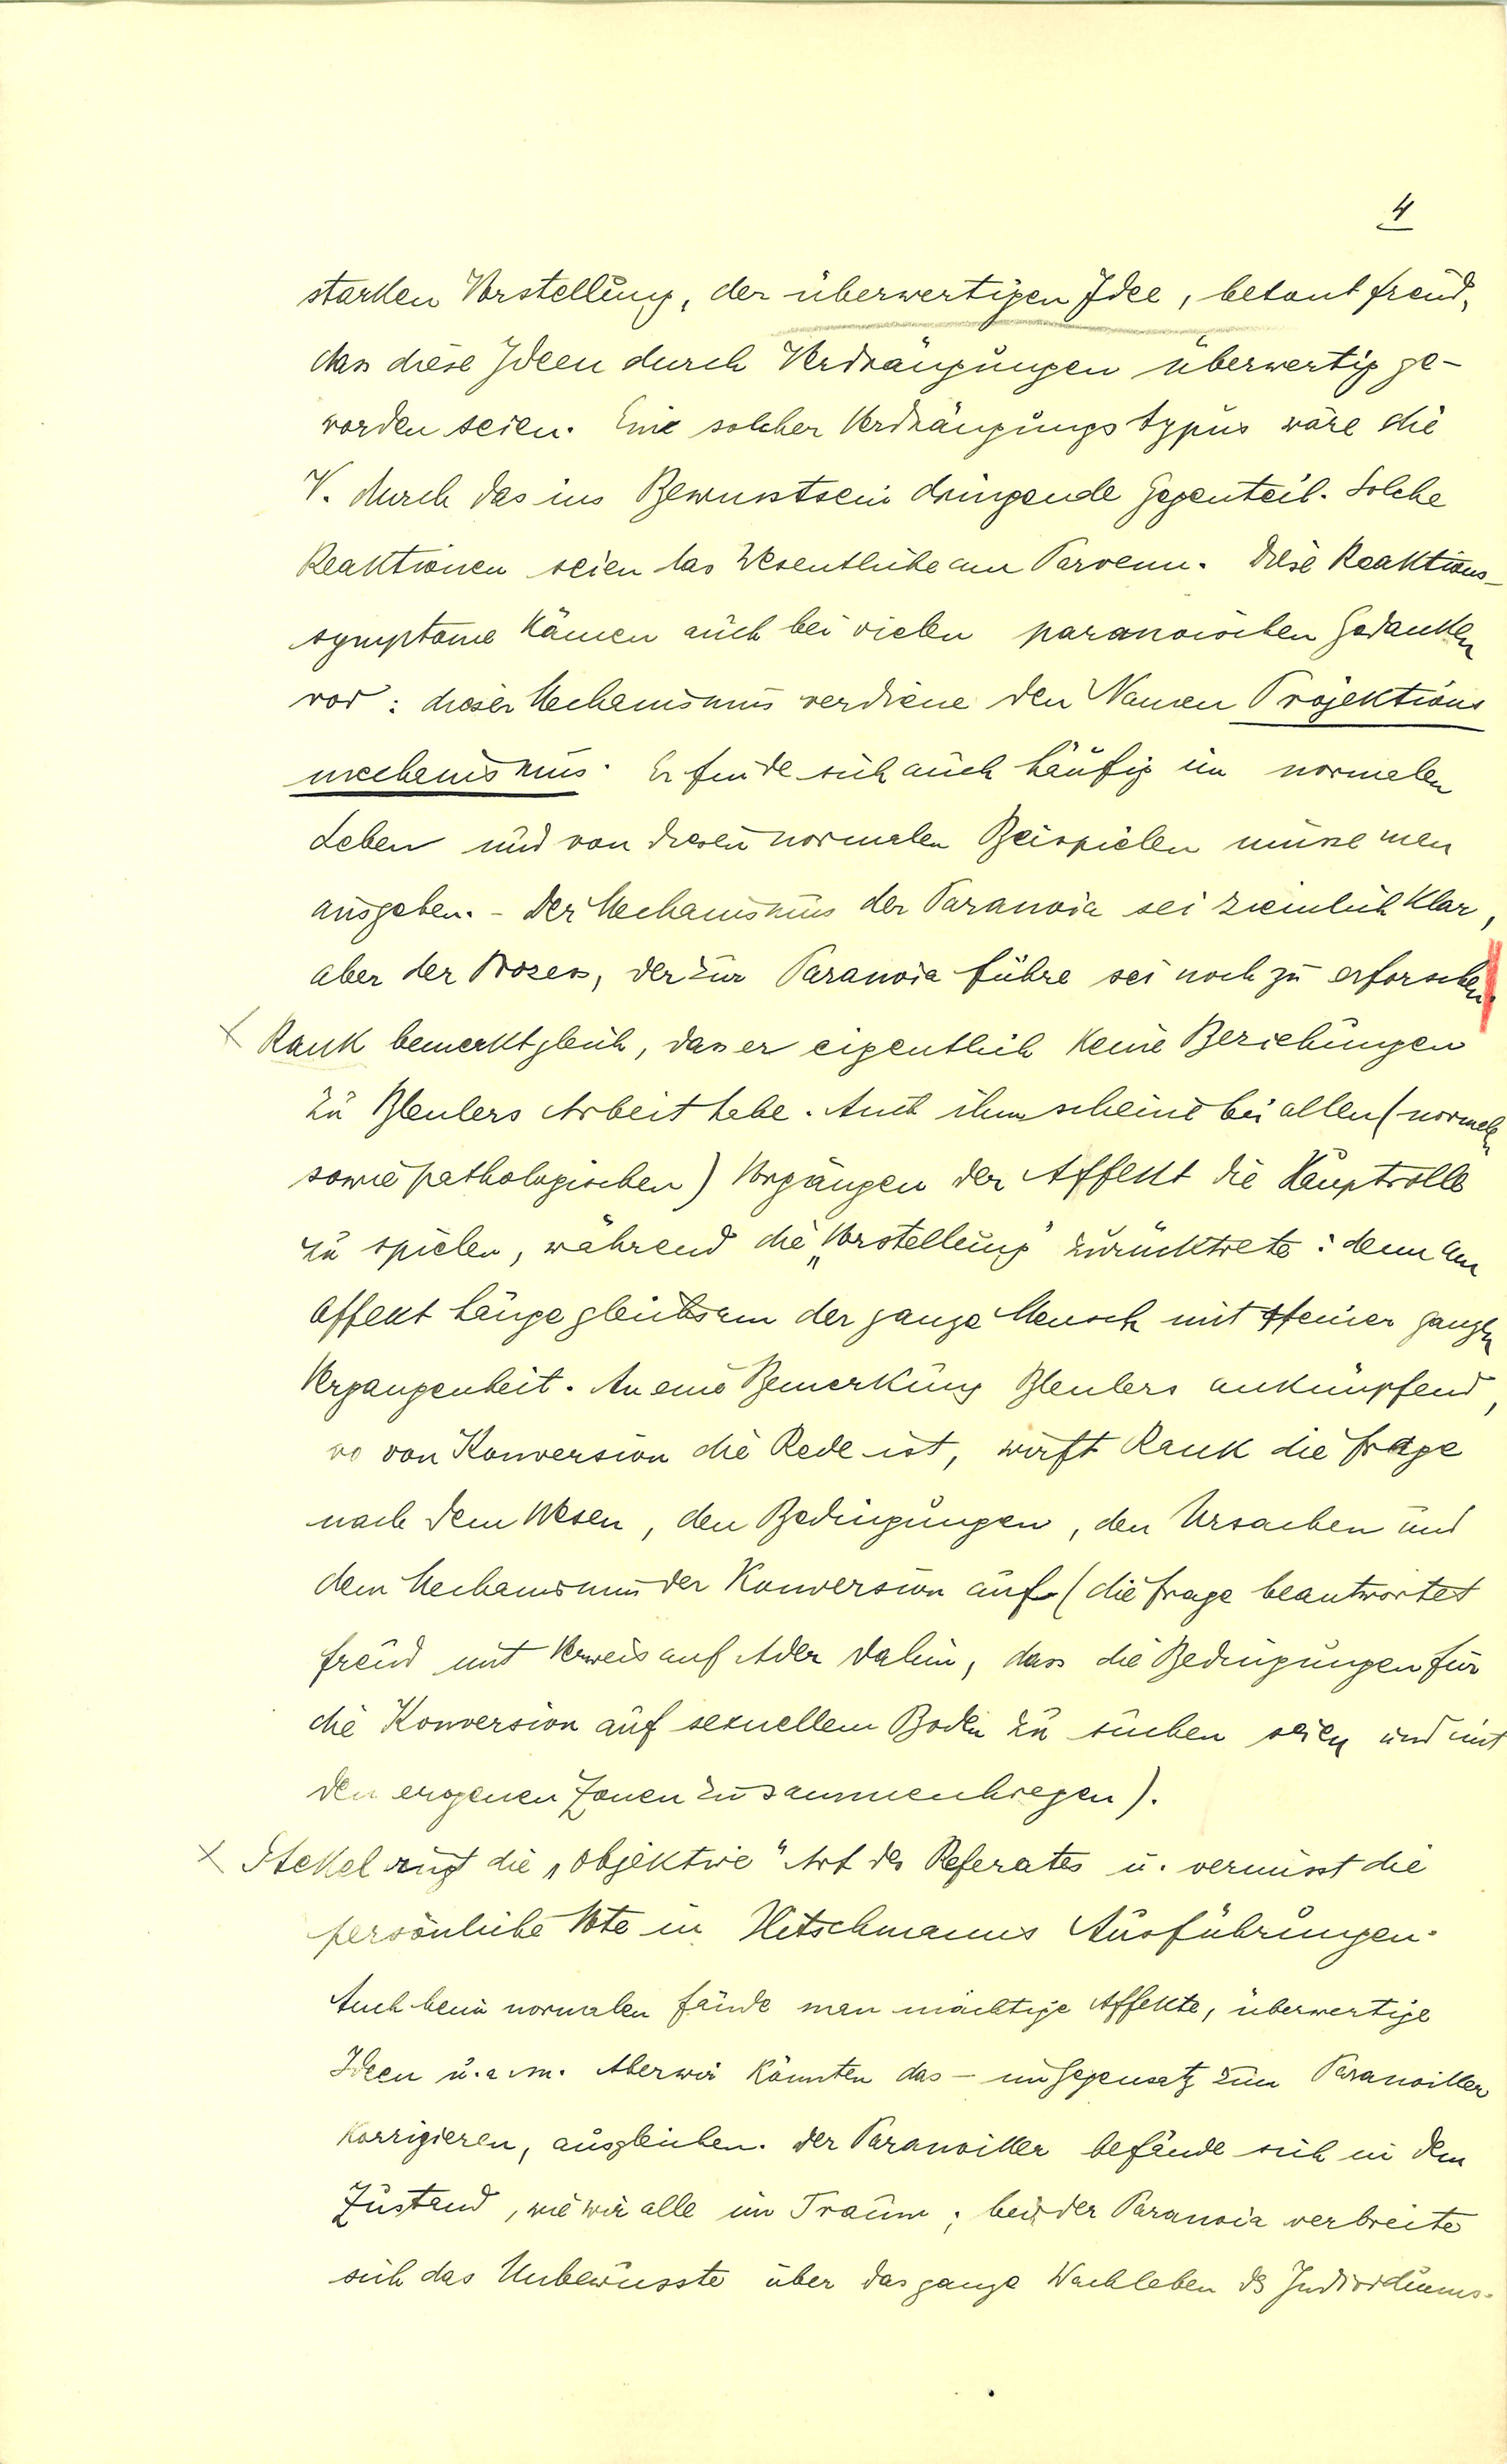 4
starken Vorstellung, der überwertigen Idee, betont Freud,
dass diese Ideen durch Verdrängungen überwertig ge-
worden seien. Eine solcher Verdrängungstypus wäre die
V. durch das ins Bewusstsein dringende Gegenteil. Solche
Reaktionen seien das Wesentliche am Parvenu. Diese Reaktions-
symptome kämen auch bei vielen paranoischen Gedanken
vor: dieser Mechanismus verdiene den Namen Projektions
mechanismus. Er finde sich auch häufig im normalen
Leben und von diesen normalen Beispielen müsse man
ausgehen. - Der Mechanismus der Paranoia sei ziemlich klar,
aber der Prozess, der zur Paranoia führe sei noch zu erforschen.
Rank bemerkt gleich, dass er eigentlich keine Beziehungen
zu Bleulers Arbeit habe. Auch ihm scheine bei allen (normalen
sowie pathologischen) Vorgängen der Affekt die Hauptrolle
zu spielen, während die „Vorstellung" zurücktrete: denn am
Affekt hänge gleichsam der ganze Mensch mit seiner ganzen
Vergangenheit. An eine Bemerkung Bleulers anknüpfend,
wo von Konversion die Rede ist, wirft Rank die Frage
nach dem Wesen, den Bedingungen, den Ursachen und
dem Mechanismus der Konversion auf. (die Frage beantwortet
Freud mit Verweis auf Adler dahin, dass die Bedingungen für
die Konversion auf sexuellem Boden zu suchen seien und mit
den erogenen Zonen zusammenhiengen).
Stekel rügt die „objektive" Art des Referates u. vermisst die
persönliche Note in Hitschmanns Ausführungen.
Auch beim normalen fände man mächtige Affekte, überwertige
Ideen u.a.m. Aber wir könnten das - im Gegensatz zum Paranoiker
korrigieren, ausgleichen. Der Paranoiker befände sich in dem
Zustand, wie wir alle im Traum; bei der Paranoia verbreite
sich das Unbewusste über das ganze Wachleben des Individuums.